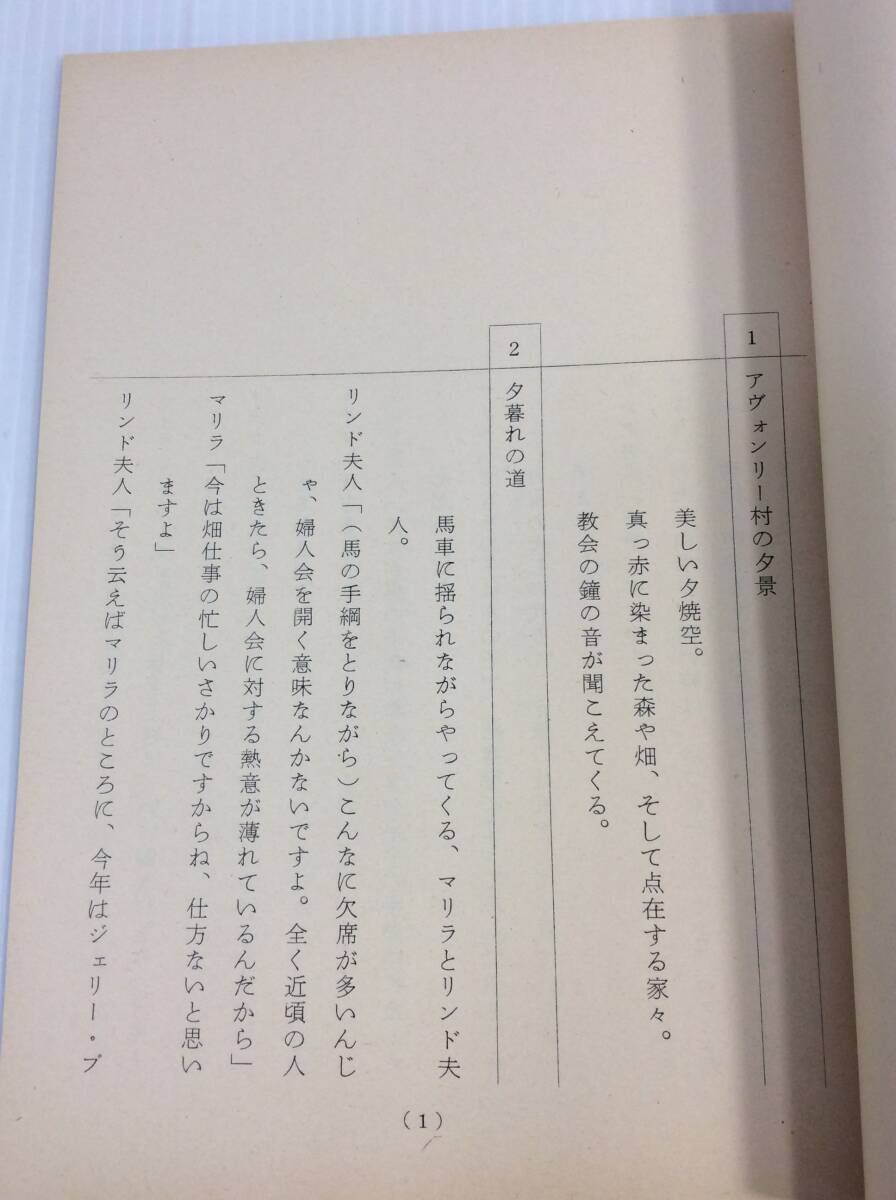 1 アヴォンリー村の夕景
美しい夕焼空。
真っ赤に染まった森や畑、そして点在する家々。
教会の鐘の音が聞こえてくる。
2 夕暮れの道
馬車に揺られながらやってくる、マリラとリンド夫
人。
リンド夫人「（馬の手綱をとりながら）こんなに欠席が多いんじ
ゃ、婦人会を開く意味なんかないですよ。全く近頃の人
ときたら、婦人会に対する熱意が薄れているんだから」
マリラ「今は畑仕事の忙しいさかりですからね、仕方ないと思い
ますよ」
リンド夫人「そう云えばマリラのところに、今年はジェリー・ブ
（1）